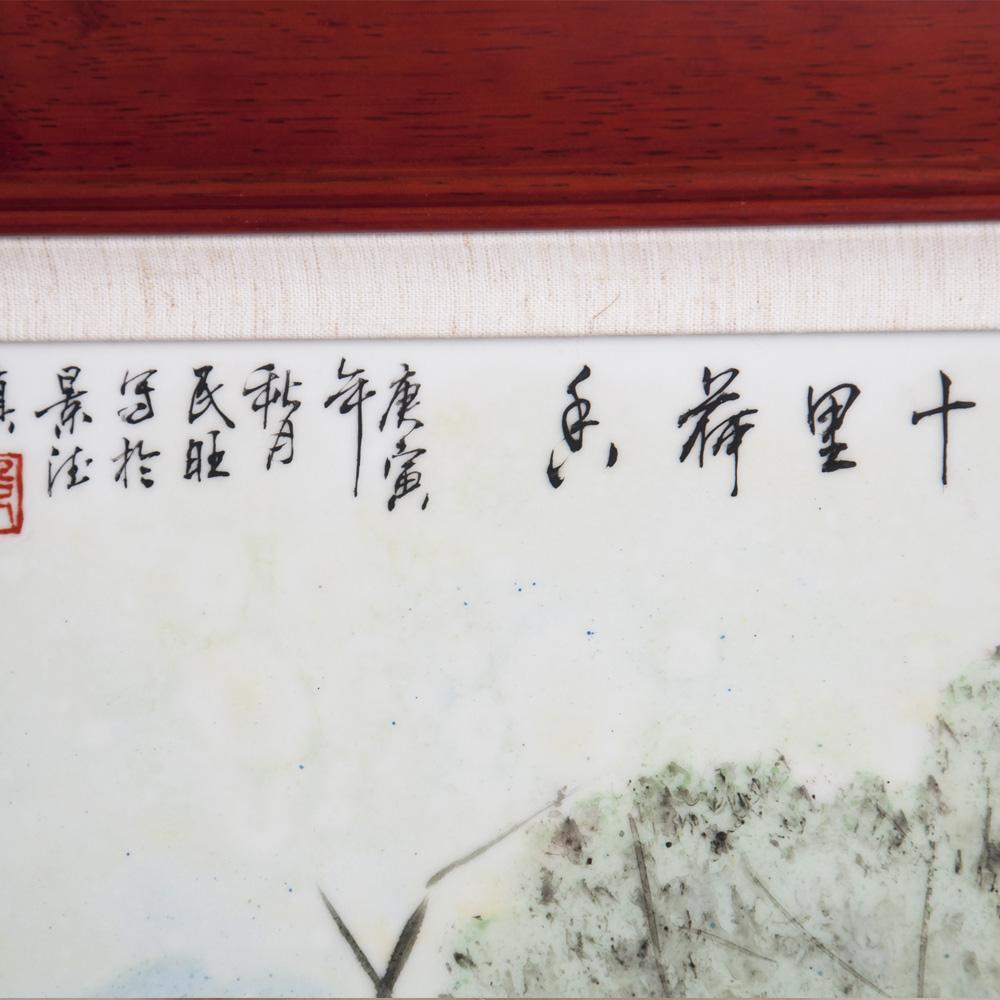 十里荷香
庚寅
年
秋月
民旺
写於
景德
镇